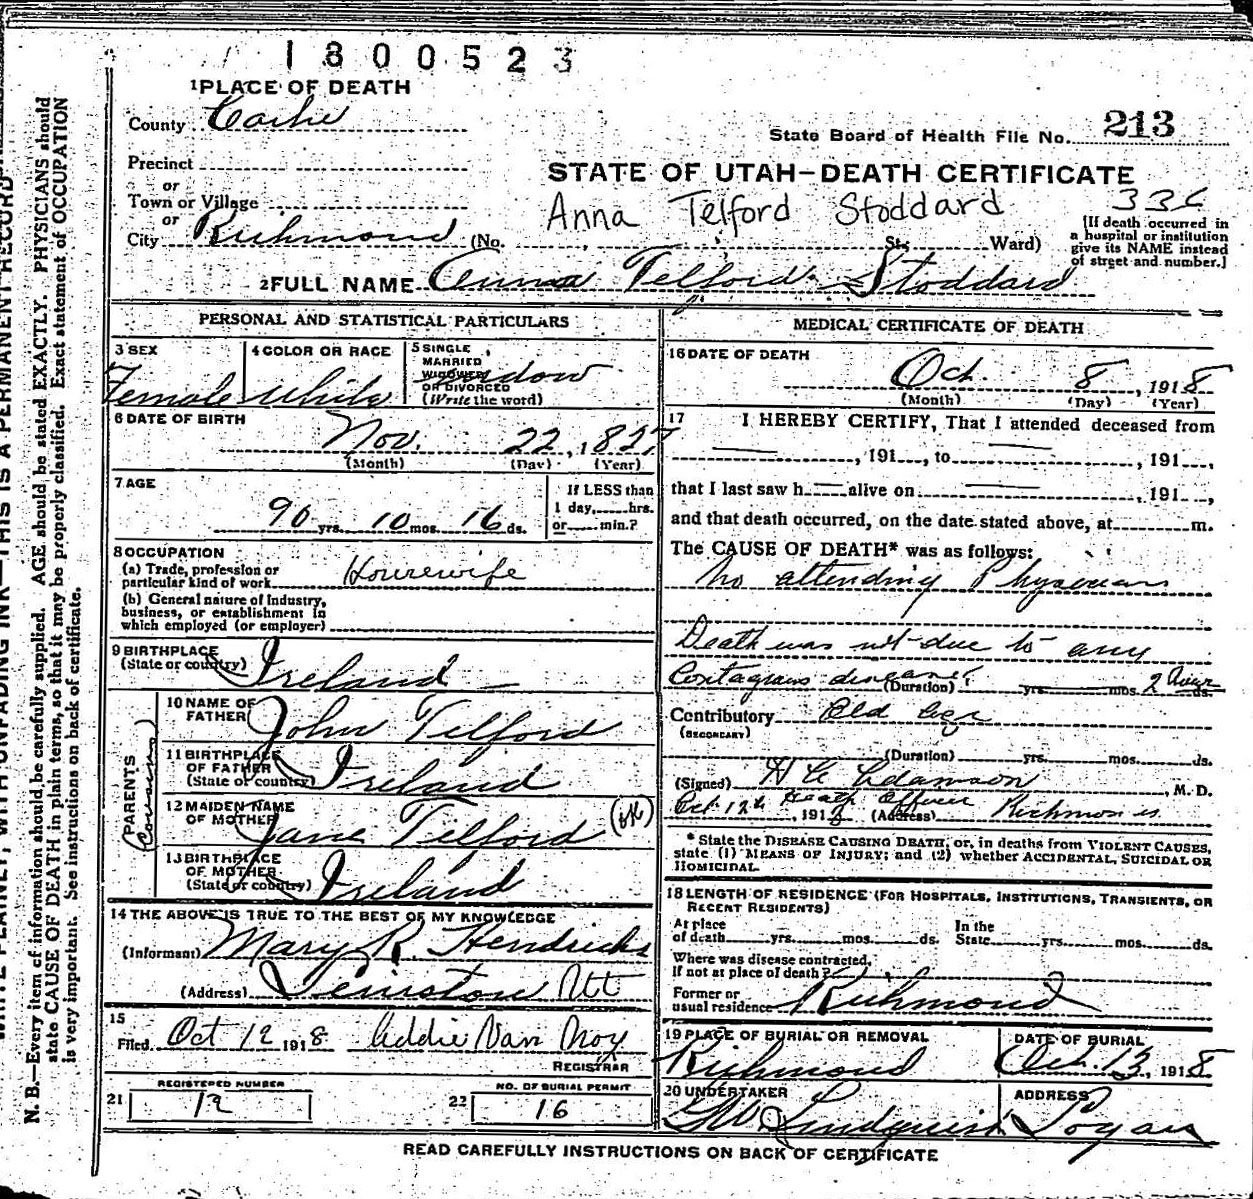 1800523
1 PLACE OF DEATH
County Cache
State Board of Health File No. 213
Precinct
or
Town or Village
or
City Richmond (No. St; Ward)
STATE OF UTAH—DEATH CERTIFICATE
Anna Telford Stoddard
[If death occurred in
a hospital or institution
give its NAME instead
of street and number.]
2 FULL NAME Anna Telford Stoddard
PERSONAL AND STATISTICAL PARTICULARS
3 SEX
Female
4 COLOR OR RACE
White
5 SINGLE
MARRIED
WIDOWED
OR DIVORCED
(Write the word)
Widow
6 DATE OF BIRTH
Nov. 22, 1827
(Month) (Day) (Year)
7 AGE
90 yrs. 10 mos. 16 ds.
If LESS than
1 day, hrs.
or min.?
8 OCCUPATION
(a) Trade, profession or
particular kind of work Housewife
(b) General nature of Industry,
business, or establishment in
which employed (or employer)
9 BIRTHPLACE
(State or country) Ireland
PARENTS
(Cousins)
10 NAME OF
FATHER John Telford
11 BIRTHPLACE
OF FATHER
(State or country) Ireland
12 MAIDEN NAME
OF MOTHER Jane Telford (ok)
13 BIRTHPLACE
OF MOTHER
(State or country) Ireland
14 THE ABOVE IS TRUE TO THE BEST OF MY KNOWLEDGE
(Informant) Mary R. Hendricks
(Address) Lewiston Ut
15
Filed Oct 12 1918 Addie Van Noy
REGISTRAR
REGISTERED NUMBER
21 12
NO. OF BURIAL PERMIT
22 16
MEDICAL CERTIFICATE OF DEATH
16 DATE OF DEATH
Oct. 8, 1918
(Month) (Day) (Year)
17 I HEREBY CERTIFY, That I attended deceased from
, 191 , to , 191 ,
that I last saw h alive on , 191 ,
and that death occurred, on the date stated above, at m.
The CAUSE OF DEATH* was as follows:
No attending Physician
Death was not due to any
Contagious disease.
(Duration) yrs. mos. 2 ds.
Contributory Old age
(SECONDARY)
(Duration) yrs. mos. ds.
(Signed) H C Adamson, M. D.
Oct 12th, 1918 Health Officer (Address) Richmond
* State the DISEASE CAUSING DEATH, or, in deaths from VIOLENT CAUSES,
state (1) MEANS OF INJURY; and (2) whether ACCIDENTAL, SUICIDAL OR
HOMICIDAL.
18 LENGTH OF RESIDENCE (FOR HOSPITALS, INSTITUTIONS, TRANSIENTS, OR
RECENT RESIDENTS)
At place
of death yrs. mos. ds.
In the
State yrs. mos. ds.
Where was disease contracted,
if not at place of death?
Former or
usual residence Richmond
19 PLACE OF BURIAL OR REMOVAL
Richmond
DATE OF BURIAL
Oct. 13, 1918
20 UNDERTAKER
Lindquist
ADDRESS
Logan
READ CAREFULLY INSTRUCTIONS ON BACK OF CERTIFICATE
WRITE PLAINLY, WITH UNFADING INK—THIS IS A PERMANENT RECORD
N. B.—Every item of information should be carefully supplied. AGE should be stated EXACTLY. PHYSICIANS should
state CAUSE OF DEATH in plain terms, so that it may be properly classified. Exact statement of OCCUPATION
is very important. See instructions on back of certificate.